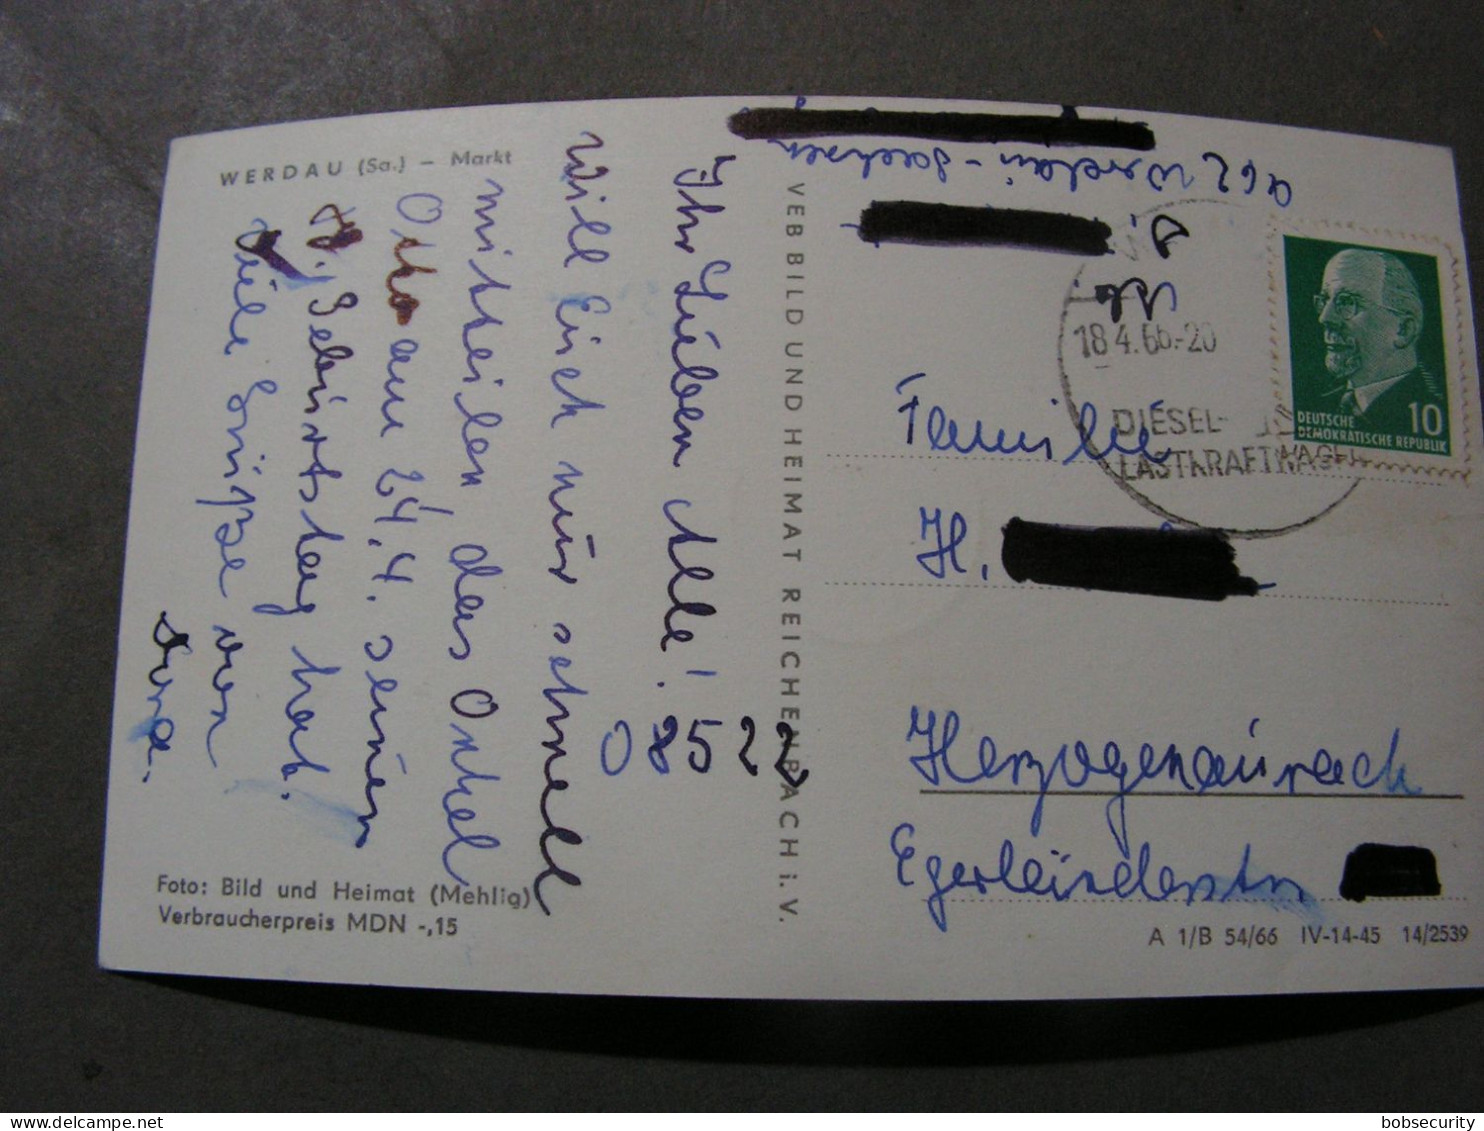 WERDAU (Sa.) – Markt
Ihr Lieben Alle!
Will Euch nur schnell
mitteilen das Onkel
Otto am 24.4. seinen
Geburtstag hat.
Viele Grüße von
Dora.
08522
Foto: Bild und Heimat (Mehlig)
Verbraucherpreis MDN -,15
VEB BILD UND HEIMAT REICHENBACH i. V.
962 Werdau - Sachsen
18.4.66.-20
DIESEL-
LASTKRAFTWAGEN
DEUTSCHE 10
DEMOKRATISCHE REPUBLIK
Familie
H.
Herzogenaurach
Egerländerstr
A 1/B 54/66 IV-14-45 14/2539
bobsecurity